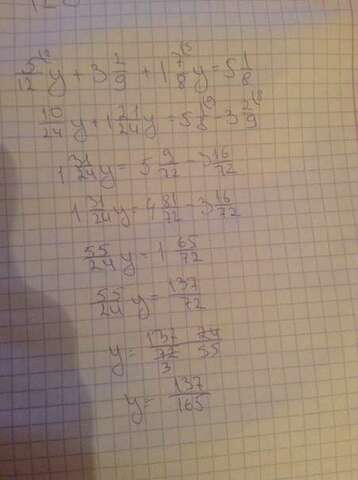 5/12 y + 3 2/9 + 1 7/8 y = 5 1/8
10/24 y + 1 21/24 y = 5 1/8 - 3 2/9
1 31/24 y = 5 9/72 - 3 16/72
1 31/24 y = 4 81/72 - 3 16/72
55/24 y = 1 65/72
55/24 y = 137/72
y = 137/72 24/55
3
y = 137/165